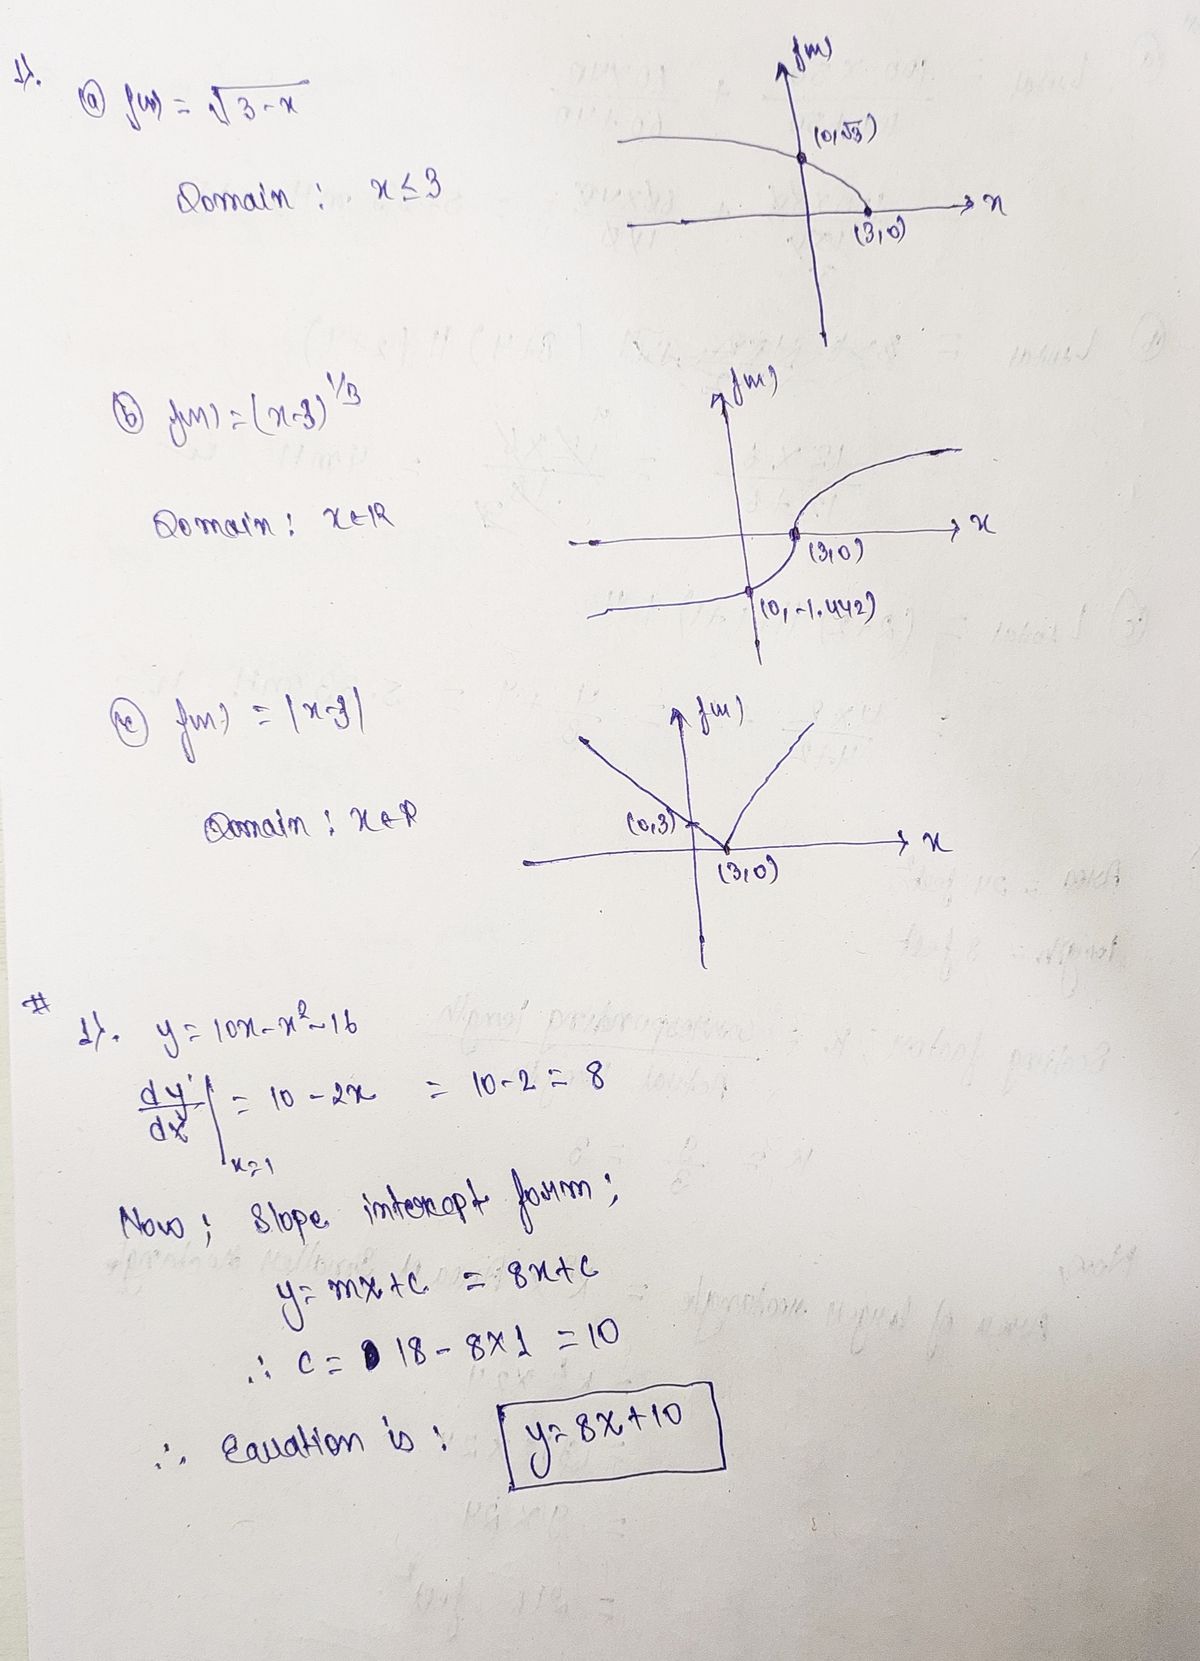 1).
(a) f(x) = √3-x
Domain : x ≤ 3
f(x)
(0,√3)
x
(3,0)
(b) f(x) = (x-3)^1/3
Domain : x∈R
f(x)
x
(3,0)
(0,-1.442)
(c) f(x) = |x-3|
Domain : x∈R
f(x)
(0,3)
x
(3,0)
#
1). y = 10x - x² - 16
dy/dx |x=1 = 10 - 2x = 10 - 2 = 8
Now ; slope intercept form ;
y = mx + c = 8x + c
∴ c = 18 - 8×1 = 10
∴ Equation is : y = 8x + 10